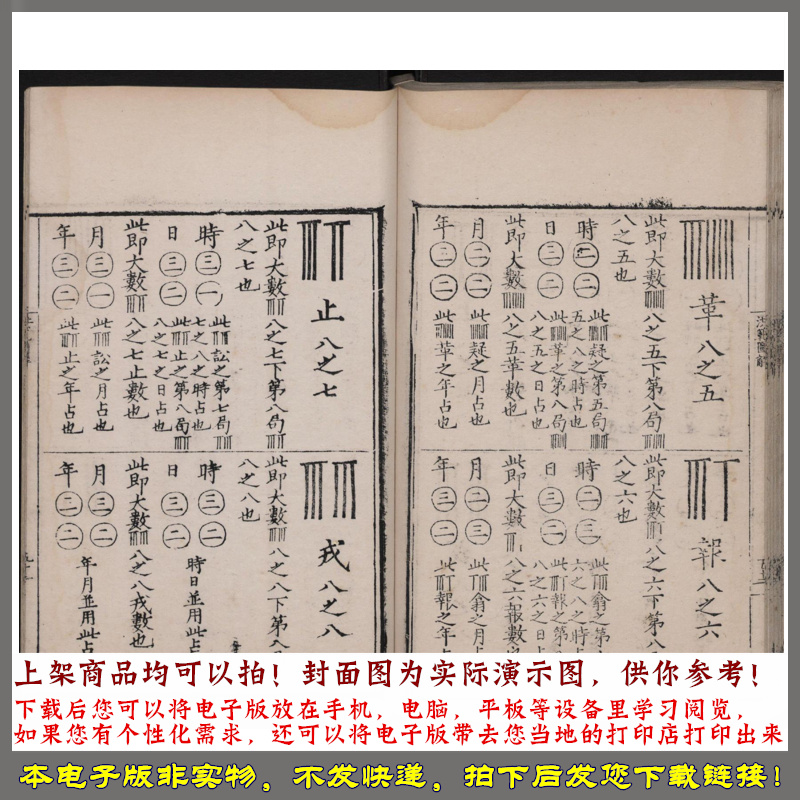 革 八之五
此即大數 八之五下第八局
八之五也
時 二 二 此疑之第五局
五之八之時占也
日 三 二 此革之第八局
八之五之日占也
此即大數 八之五革數也
月 二 二 此疑之月占也
年 三 二 此革之年占也
報 八之六
此即大數 八之六下第八
八之六也
時 二 三 此翕之第
六之八之時
日 三 二 此報之第
八之六之日占
此即大數 八之六報數也
月 二 三 此翕之月占
年 三 二 此報之年占
止 八之七
此即大數 八之七下第八局
八之七也
時 三 一 此訟之第七局
七之八之時占也
日 三 二 此止之第八局
八之七之日占也
此即大數 八之七止數也
月 三 一 此訟之月占也
年 三 二 此止之年占也
戎 八之八
此即大數 八之八下第八
八之八也
時 三 二
日 三 二 時日並用此占
此即大數 八之八戎數也
月 三 二
年 三 二 年月並用此占
上架商品均可以拍！封面图为实际演示图，供你参考！
下载后您可以将电子版放在手机，电脑，平板等设备里学习阅览，
如果您有个性化需求，还可以将电子版带去您当地的打印店打印出来
本电子版非实物，不发快递，拍下后发您下载链接！